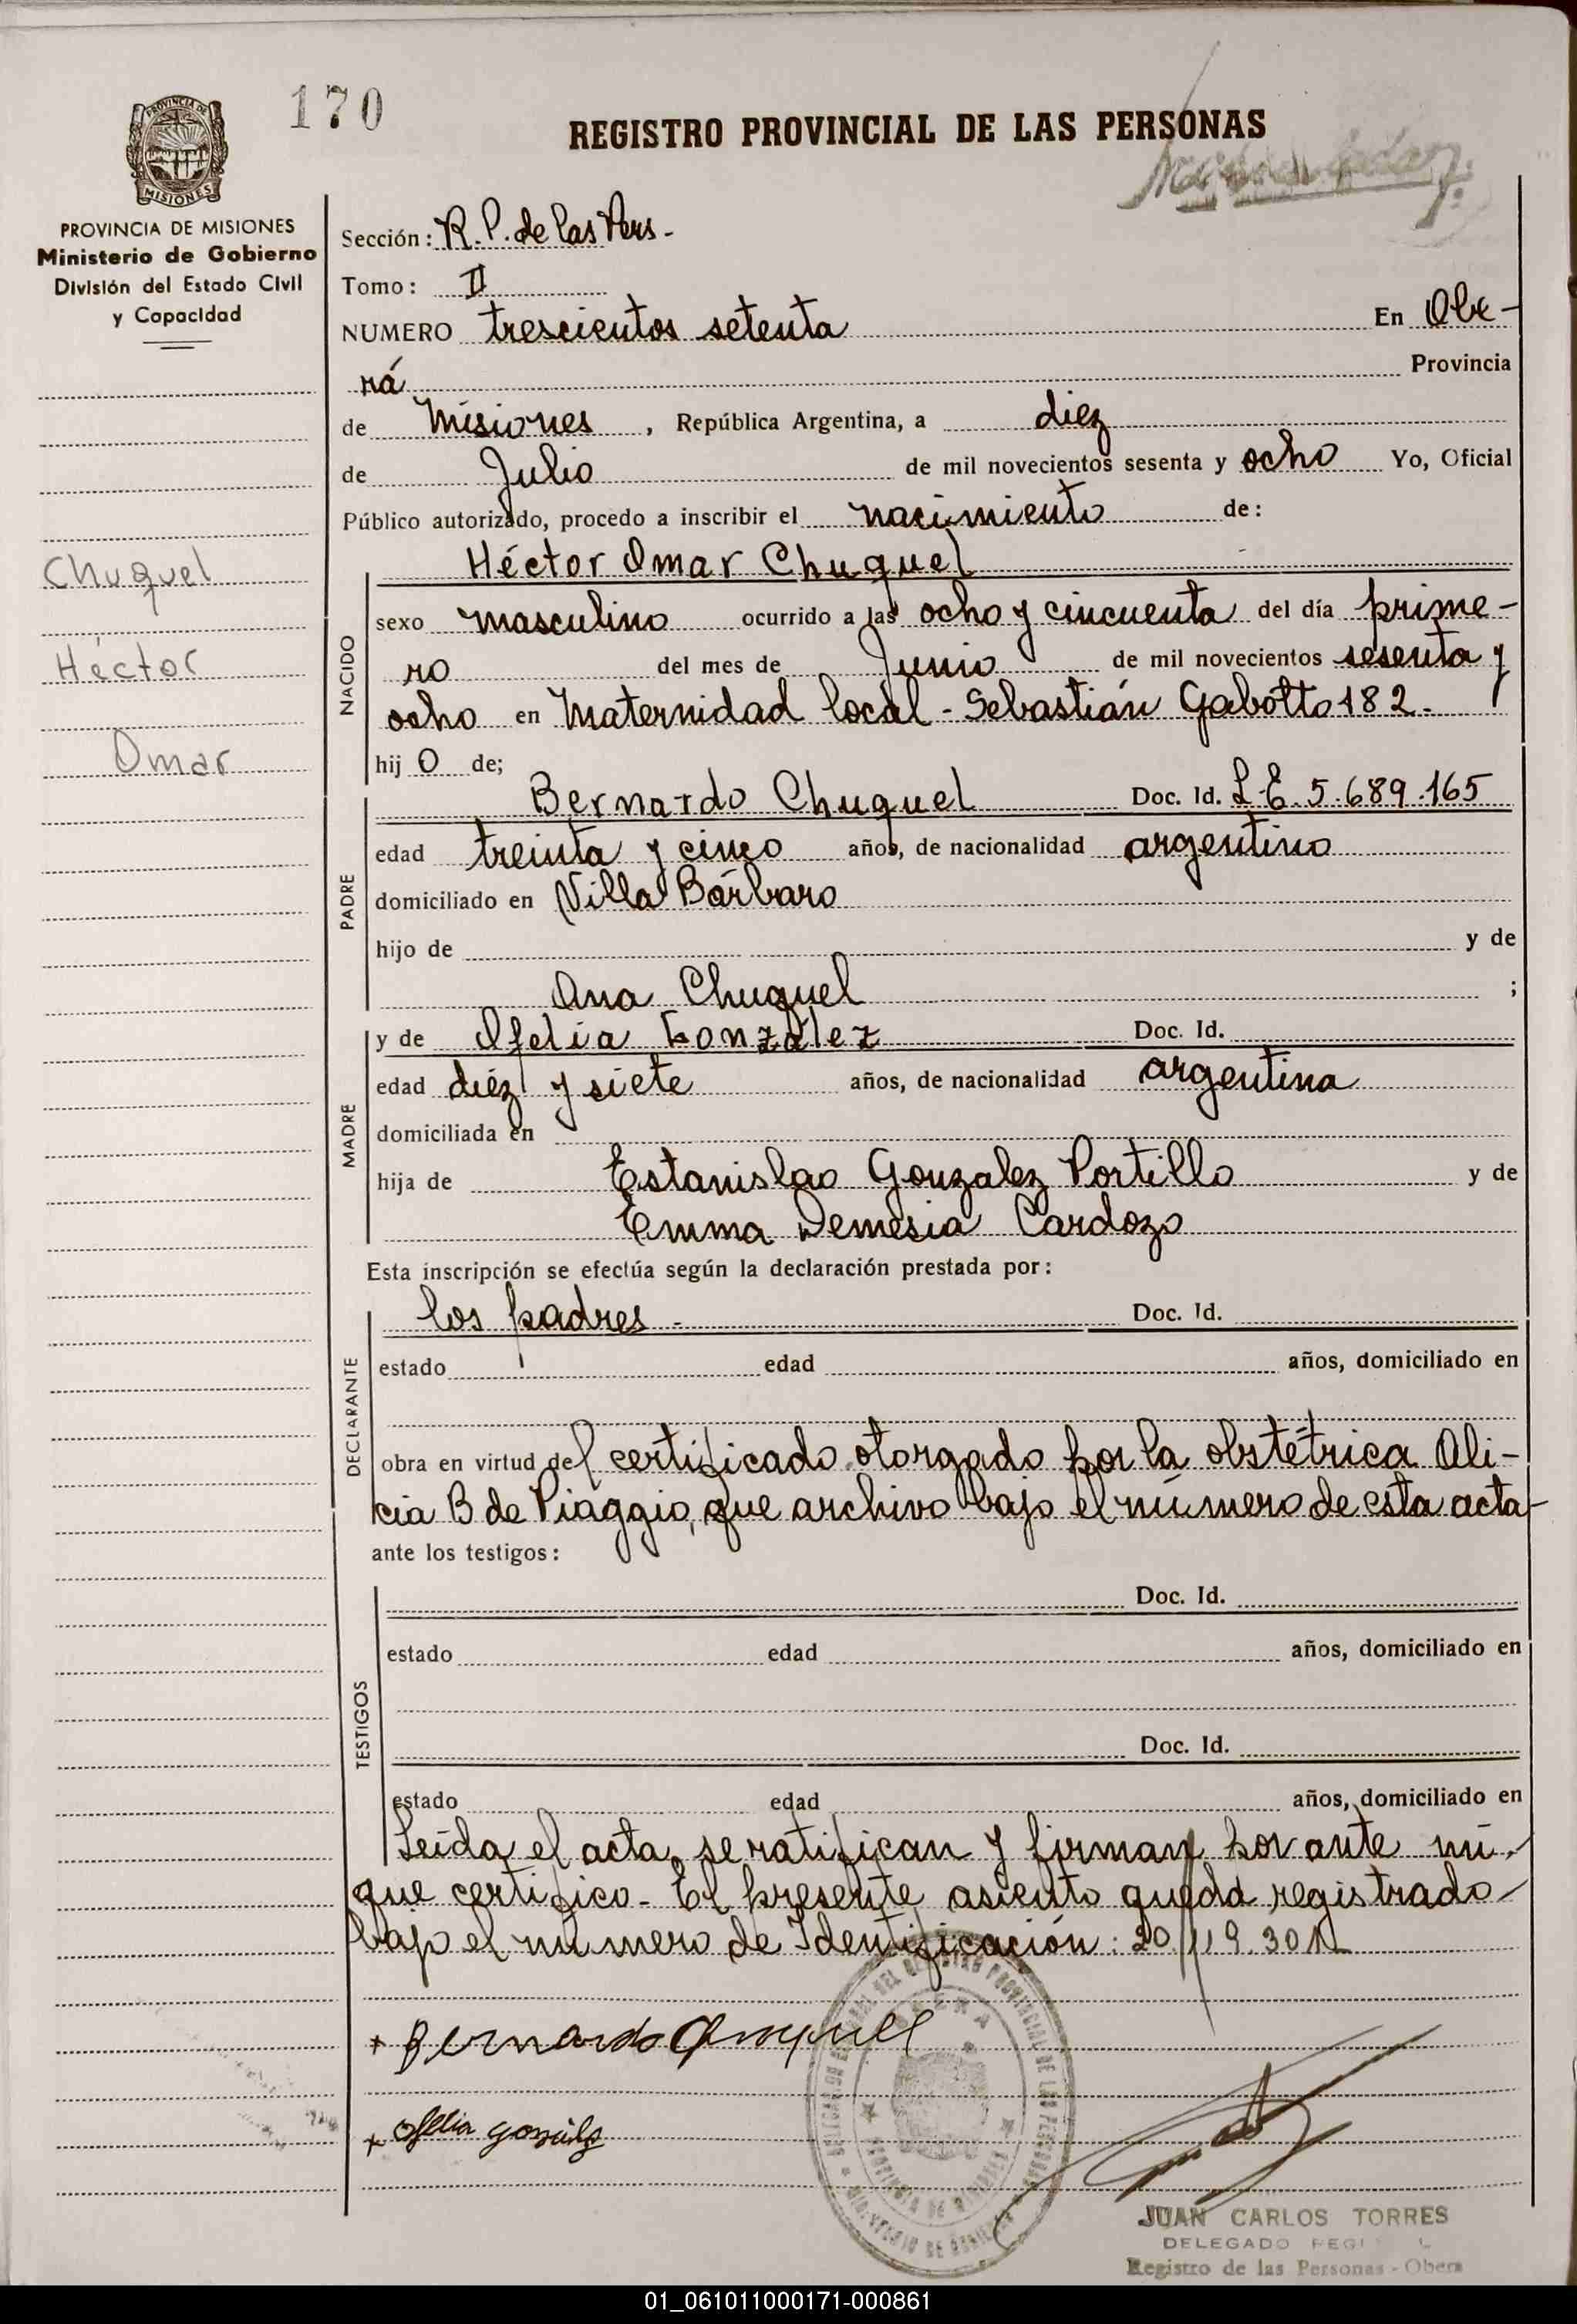 170
REGISTRO PROVINCIAL DE LAS PERSONAS
PROVINCIA DE
MISIONES
PROVINCIA DE MISIONES
Ministerio de Gobierno
División del Estado Civil
y Capacidad
Sección: R. P. de las Pers-
Tomo: II
NUMERO trescientos setenta En Obe-
rá Provincia
de Misiones, República Argentina, a diez
de Julio de mil novecientos sesenta y ocho Yo, Oficial
Público autorizado, procedo a inscribir el nacimiento de:
Héctor Omar Chuquel
Chuquel
Héctor
Omar
NACIDO
sexo masculino ocurrido a las ocho y cincuenta del día prime-
ro del mes de Junio de mil novecientos sesenta y
ocho en Maternidad local - Sebastián Gabotto 182.
hij o de;
PADRE
Bernardo Chuquel Doc. Id. L.E. 5.689.165
edad treinta y cinco años, de nacionalidad argentino
domiciliado en Villa Bárbaro
hijo de y de
Ana Chuquel ;
MADRE
y de Ofelia González Doc. Id.
edad diéz y siete años, de nacionalidad argentina
domiciliada en
hija de Estanislao Gonzalez Portillo y de
Emma Demesia Cardozo
Esta inscripción se efectúa según la declaración prestada por:
DECLARANTE
los padres - Doc. Id.
estado edad años, domiciliado en
obra en virtud del certificado otorgado por la obstétrica Ali-
cia B de Piaggio, que archivo bajo el número de esta acta-
ante los testigos:
TESTIGOS
Doc. Id.
estado edad años, domiciliado en
Doc. Id.
estado edad años, domiciliado en
Leída el acta, se ratifican y firman por ante mí,
que certifico - El presente asiento queda registrado
bajo el número de Identificación: 20.119.301
Bernardo Chuquel
Ofelia gonzalez
JUAN CARLOS TORRES
DELEGADO
Registro de las Personas - Obera
01_061011000171-000861